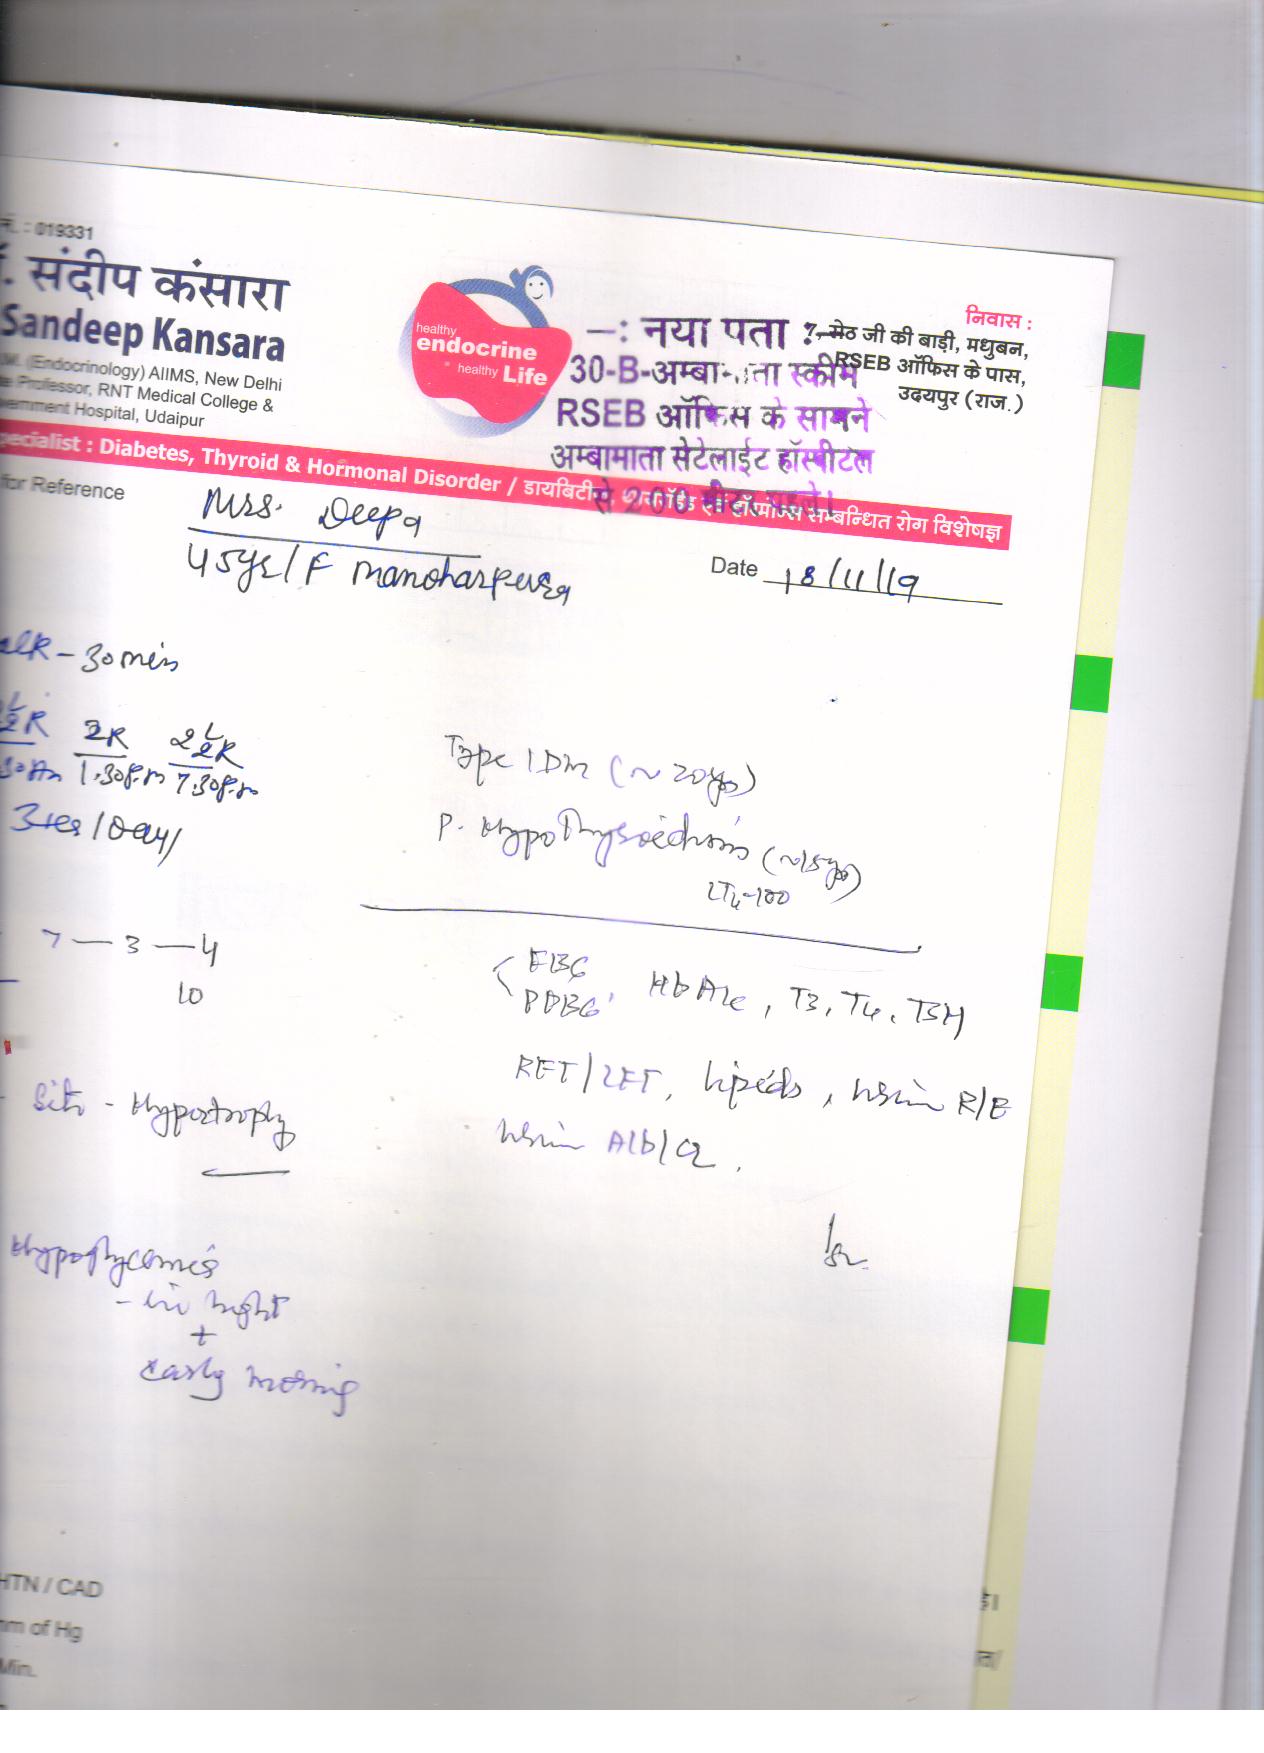 : 019331
संदीप कंसारा
Sandeep Kansara
(Endocrinology) AIIMS, New Delhi
Professor, RNT Medical College &
Government Hospital, Udaipur
healthy
endocrine
healthy Life
निवास :
7-सेठ जी की बाड़ी, मधुबन,
RSEB ऑफिस के पास,
उदयपुर (राज.)
-: नया पता :-
30-B-अम्बामाता स्कीम
RSEB ऑफिस के सामने
अम्बामाता सेटेलाईट हॉस्पीटल
से 200 मीटर पहले।
Specialist : Diabetes, Thyroid & Hormonal Disorder / डायबिटीज, थायरॉईड एवं हॉर्मोन्स सम्बन्धित रोग विशेषज्ञ
for Reference
Mrs. Deepa
45yrs/F Manoharpura
Date 18/11/19
alk - 30 min
2R 2½R
1.30p.m 7.30p.m
/Day
7 — 3 — 4
10
Site - Hypertrophy
Hypoglycemia
- in night
+
early morning
Type 1 DM (~ 20yrs)
P. Hypothyroidism (~15yrs)
LT4-100
FBG
PPBG, HbA1c, T3, T4, TSH
RFT/LFT, lipids, urine R/E
urine Alb/Cr.
HTN / CAD
mm of Hg
Min.
है।